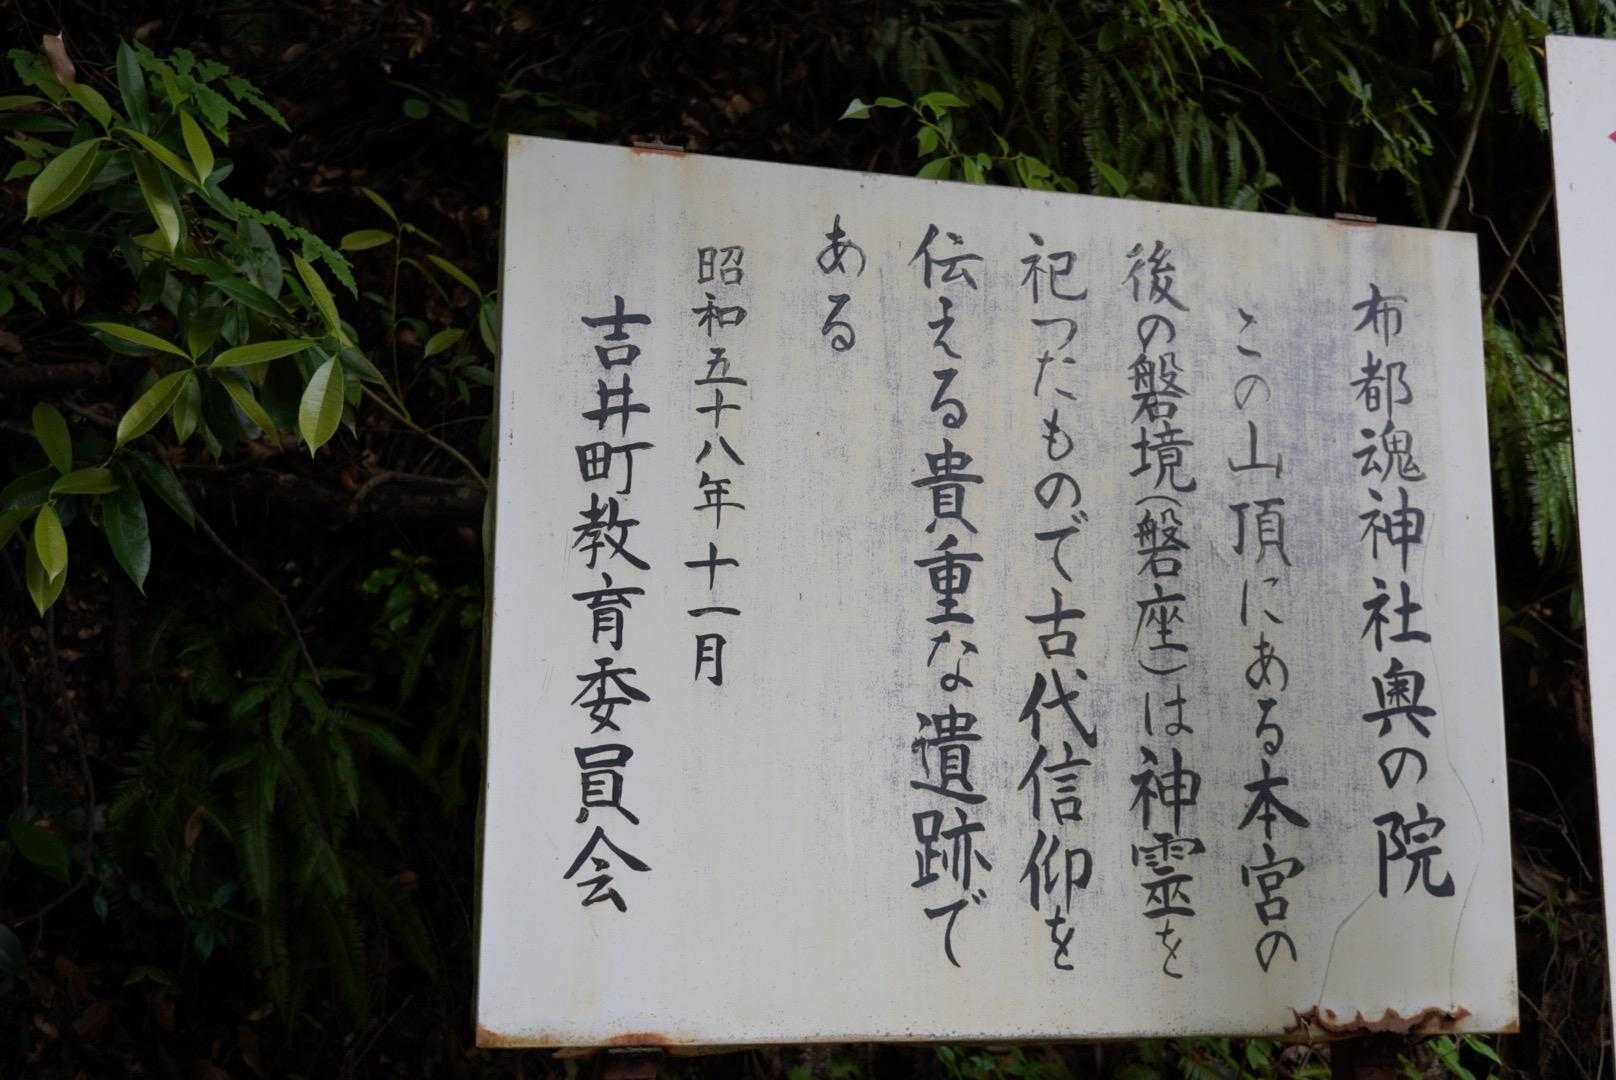 布都魂神社奥の院
この山頂にある本宮の
後の磐境(磐座)は神霊を
祀つたもので古代信仰を
伝える貴重な遺跡で
ある
昭和五十八年十一月
吉井町教育委員会